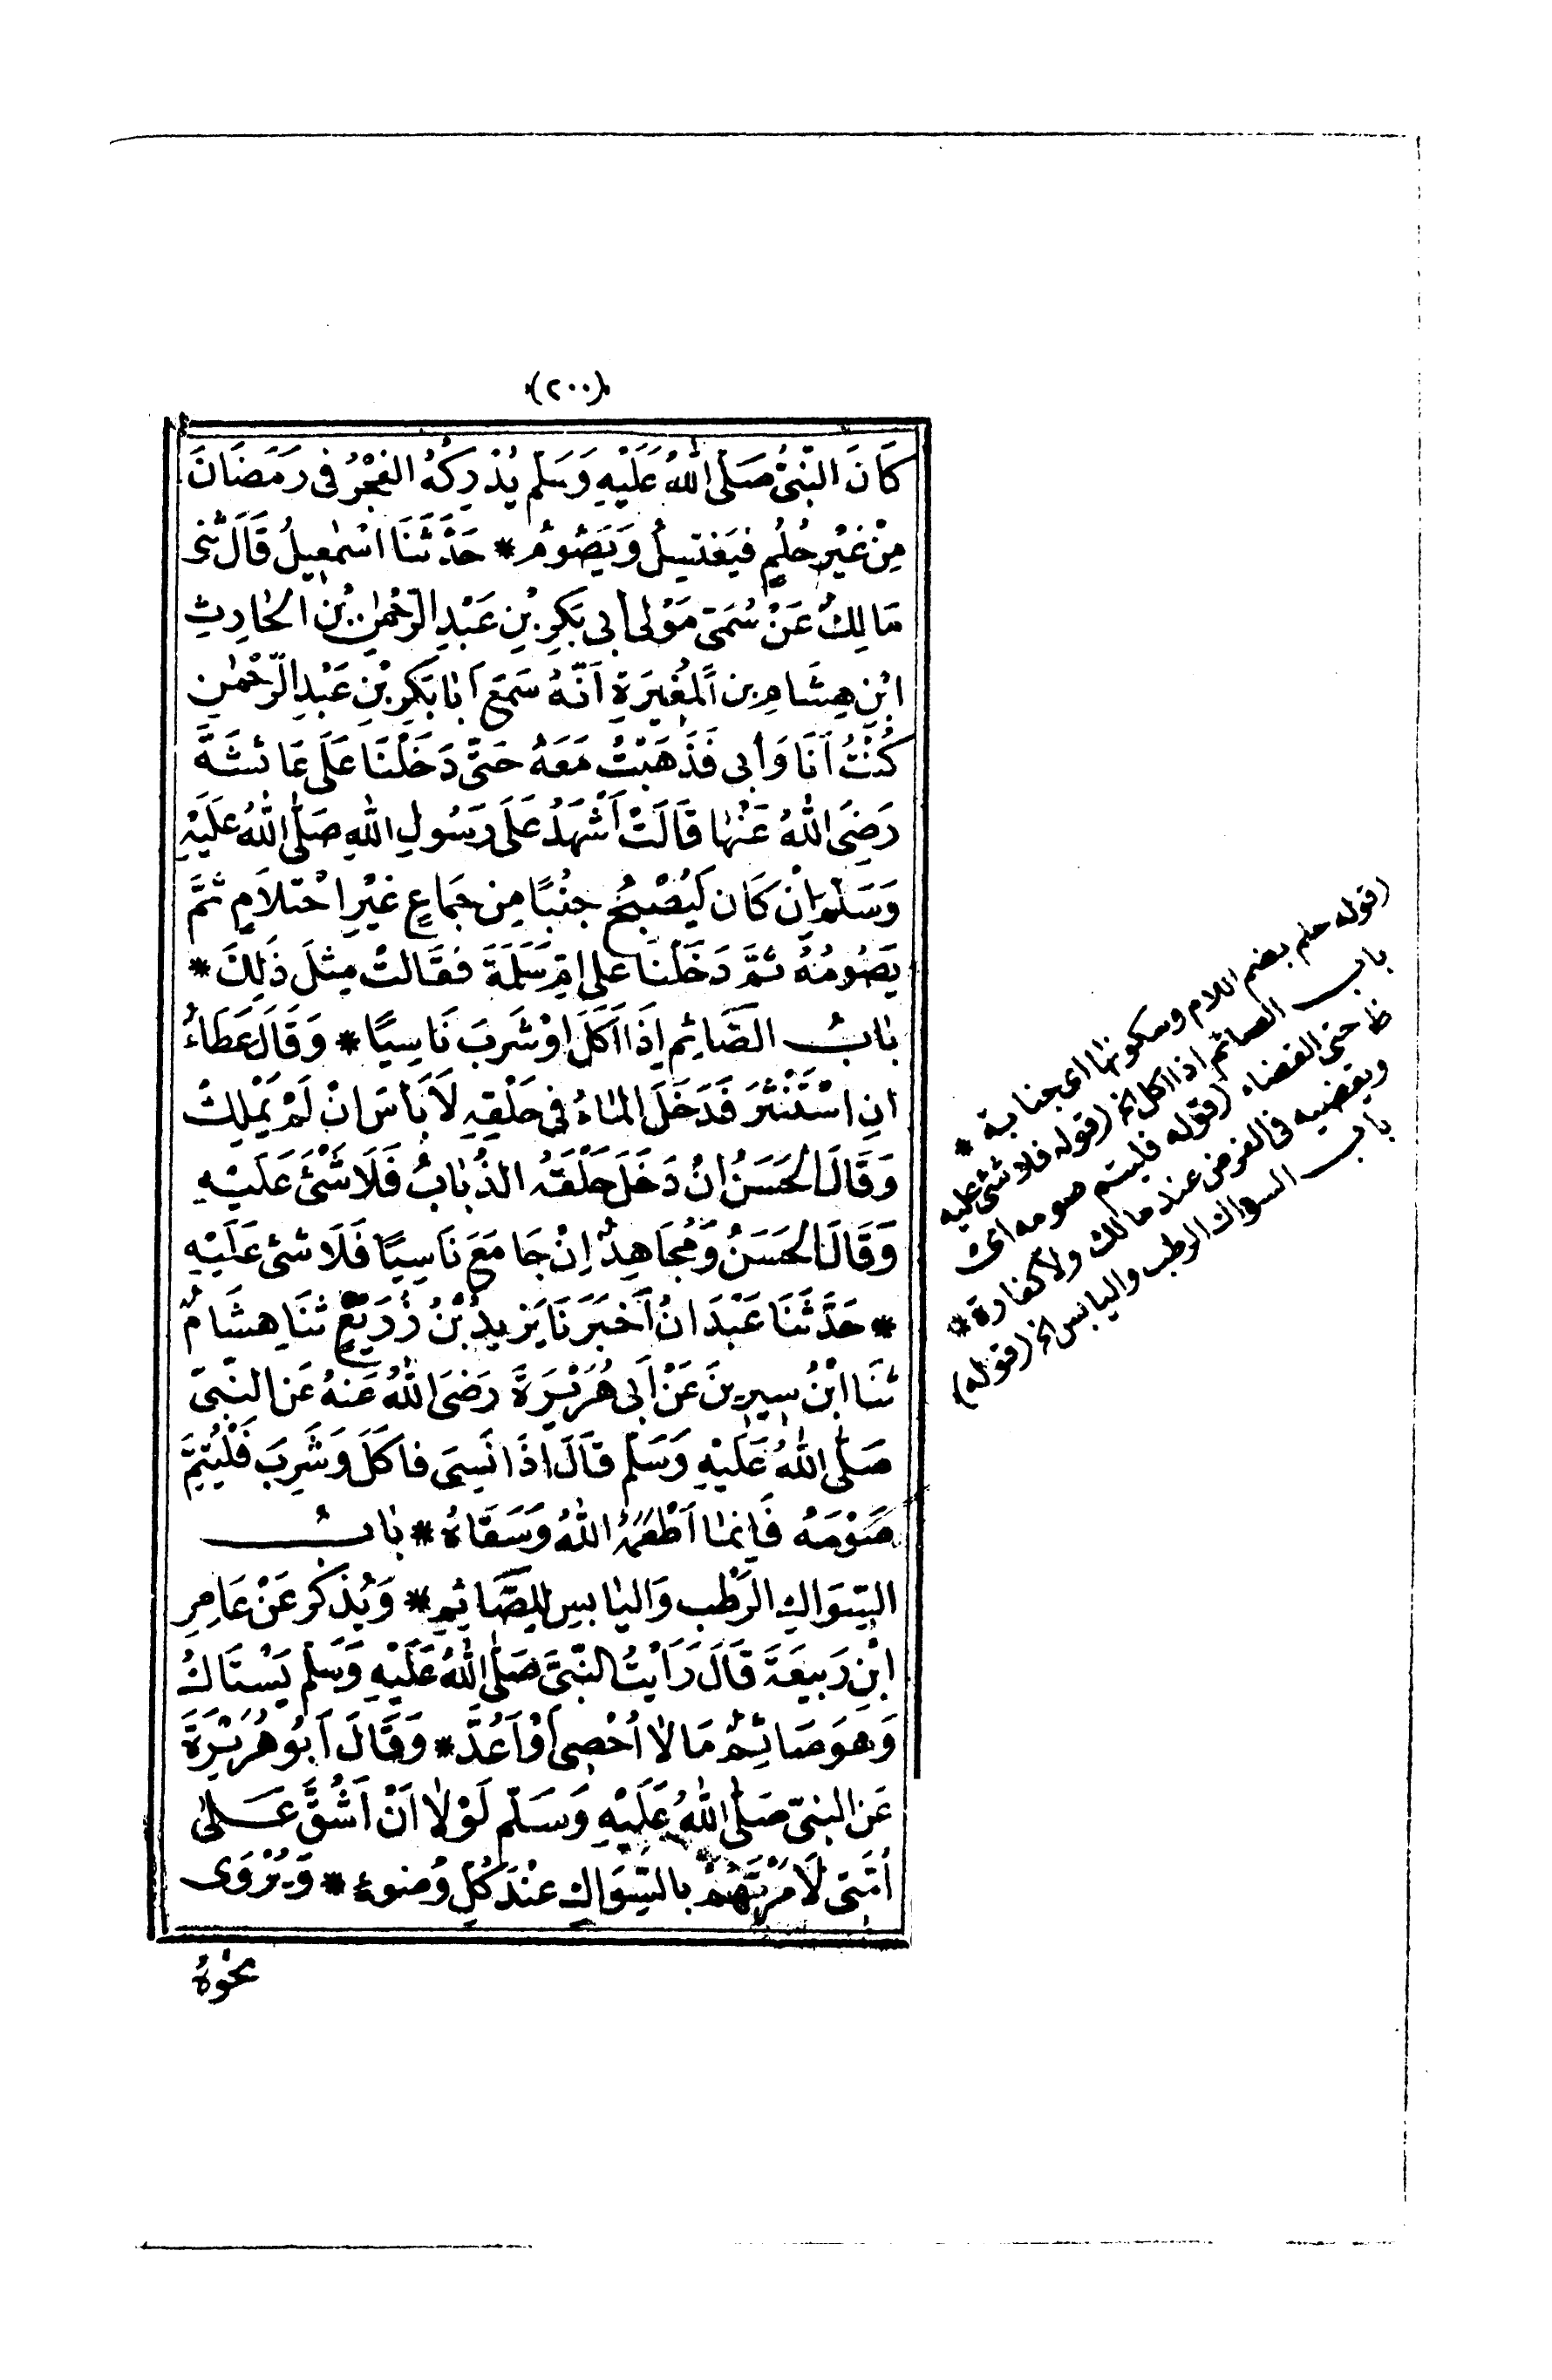 (٢٠٠)
كَانَ النَّبِىُّ صَلَّى اللهُ عَلَيْهِ وَسَلَّم يُدْرِكُهُ الفَجْرُ فِى رَمَضَانَ
مِنْ غَيْرِ حُلُمٍ فَيَغْتَسِلُ وَيَصُومُ * حَدَّثَنَا اسْمٰعِيلُ قَالَ ثَنِى
مَالِكٌ عَنْ سُمَىّ مَوْلٰى أَبِى بَكْرِ بْنِ عَبْدِ الرَّحْمٰنِ بْنِ الْحَارِثِ
ابْنِ هِشَامِ بن الْمُغِيرَةِ اَنَّهُ سَمِعَ اَبَا بَكْرِ بْنِ عَبْدِ الرَّحْمٰنِ
كُنْتُ اَنَا وَأَبِى فَذَهَبْتُ مَعَهُ حَتَّى دَخَلْنَا عَلَى عَائشَةَ
رَضِىَ اللهُ عَنْهَا قَالَتْ اَشْهَدُ عَلَى رَسُولِ اللهِ صَلَّى اللهُ عَلَيْهِ
وَسَلَّم اِنْ كَان لَيُصْبِحُ جُنُبًا مِن جِمَاعٍ غَيْرِ احْتلَامٍ ثمَّ
يَصُومُهُ ثمَّ دَخَلْنَا عَلى اُمِّ سَلَمَةَ فقَالتْ مِثلَ ذَلِكَ *
بَابُ الصَّائِمِ إِذَا اَكَلَ اوْ شَرِبَ نَاسِيًا * وَقَالَ عَطَاءٌ
انِ اسْتَنْثَرَ فَدَخَلَ الْمَاءُ فى حَلْقِهِ لَا بَأسَ انْ لَمْ يَمْلِكْ
وَقَالَ الْحَسَنُ انْ دَخَلَ حَلْقَهُ الذُّبَابُ فَلَا شَئَ عَلَيْهِ
وَقَالَ الْحَسَنُ وَمُجَاهِدٌ اِنْ جَامَعَ نَاسِيًا فَلَا شئ عَلَيْهِ
* حَدَّثَنَا عَبْدَانُ أَخبَرَنَا يَزِيدُ بْنُ زُرَيْعٍ ثنَا هِشَامٌ
ثنَا ابْنُ سِيرِينَ عَنْ اَبِى هُرَيْرَةَ رَضِىَ اللهُ عَنهُ عَن النَّبِىّ
صَلَّى اللهُ عَلَيْهِ وَسَلَّم قَالَ اذَا نَسِىَ فاكَلَ وَشَرِبَ فَلْيُتِمَّ
صَوْمَهُ فَاِنمَا اَطْعَمَهُ اللهُ وَسَقَاهُ * بَابُ
السِّوَاكِ الرَّطْبِ وَالْيَابِسِ لِلصَّائِمِ * وَيُذْكَرُ عَنْ عَامِرِ
ابْنِ رَبِيعَةَ قَالَ رَاَيْتُ النَّبِىَّ صَلَّى اللهُ عَلَيْهِ وَسَلّم يَسْتَاكُ
وَهوَ صَائِمٌ مَا لَا اُحْصِى اَوْ اَعُدُّ * وَقَالَ اَبُو هُرَيْرَةَ
عَن النبىّ صَلَّى اللهُ عَلَيْهِ وَسَلّم لَوْلَا اَنْ اَشُقَّ عَلٰى
اُمَّتِى لَاَمَرْتُهُمْ بِالسِّوَاكِ عِنْدَ كُلِّ وُضوءٍ * وَيُرْوَى
نَحْوُهُ
(قوله حلم بضم اللام وسكونها اى جنابة *
باب الصائم اذا اكل الخ (قوله فلا شئ عليه
حتى القضاء (قوله فليتم صومه اى
ويقضيه فى الفرض عند مالك ولا كفارة *
باب السواك الرطب واليابس الخ (قوله)